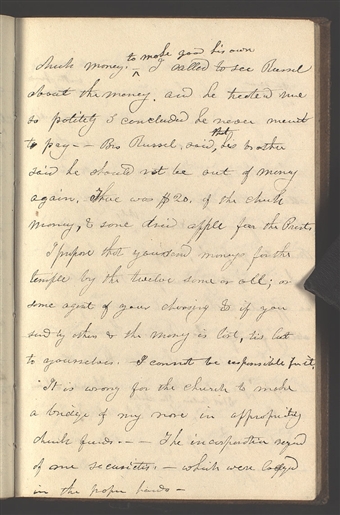 church money. to make good his own
I called to see Russel
about the money. and he treated me
so politely I concluded he never meant
to pay— Bro Russel, said, that his brother
said he should not be out of money
again. There was $20. of the church
money, & some dried apple for the Prests
I propose that you send moneys for the
temple by the twelve some or all; or
some agent of your choosing & if you
send by others & the money is lost, tis lost
to yourselves. I cannot be responsible for it,
It is wrong for the church to make
a bridge of my nose in appropriating
church funds.— The incorporation required
of me securities. — which were lodged
in the proper hands —